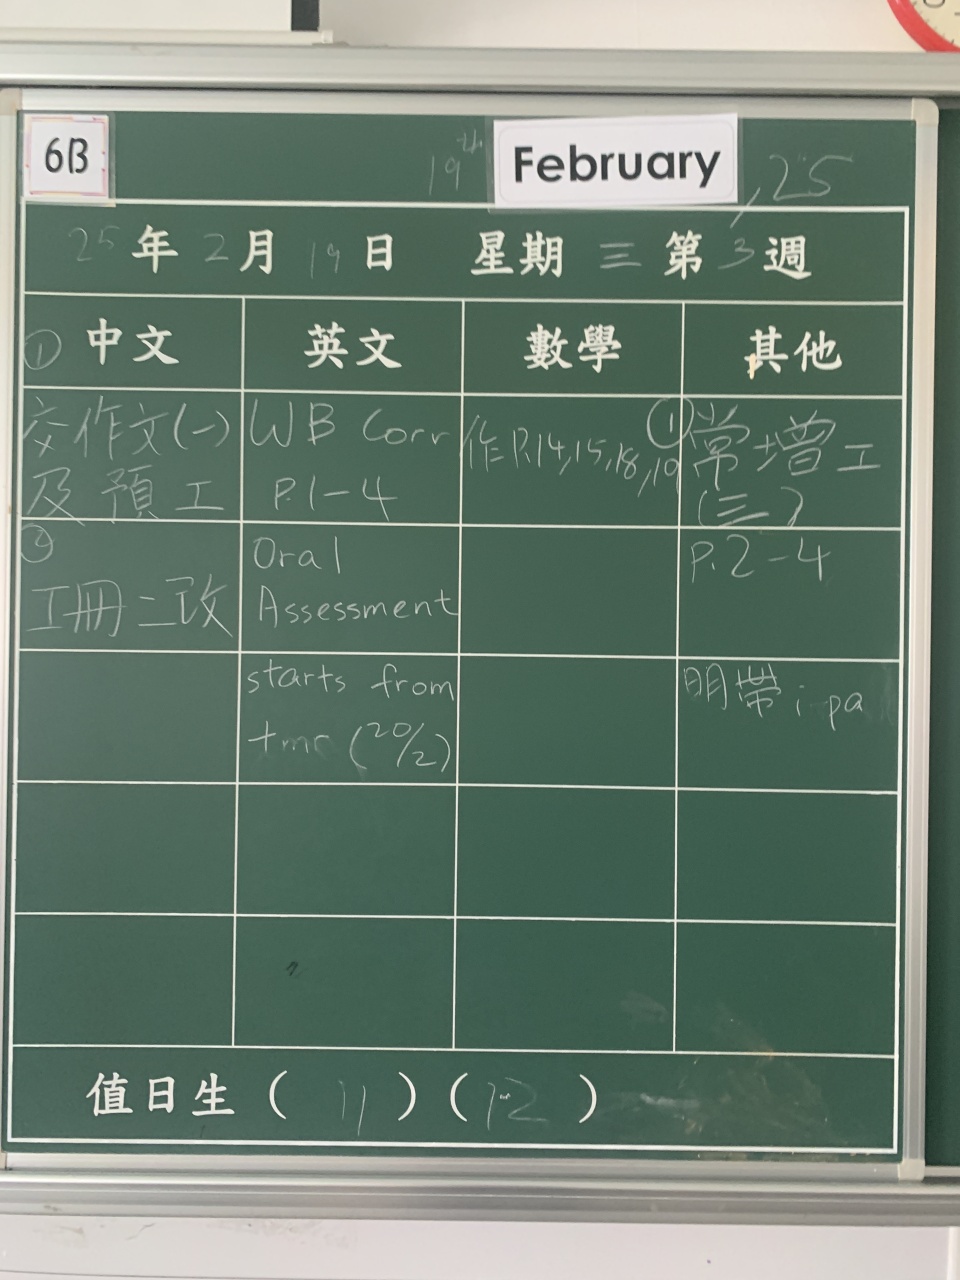 6B
19th February, 25
25年2月19日 星期三第3週
① 中文 英文 數學 其他
交作文(一)
及預工
WB Corr
P.1-4
作P.14,15,18,19
①常增工
(三)
②
工冊二改
Oral
Assessment
P.2-4
starts from
tmr (20/2)
明帶i-pa
值日生 ( 11 ) ( 12 )